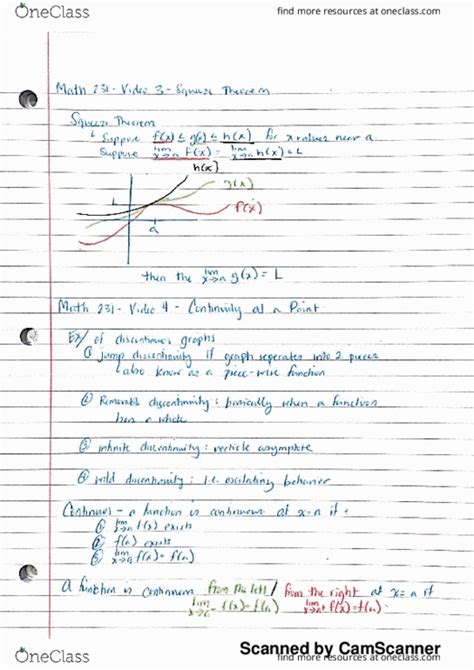 OneClass
find more resources at oneclass.com
Math 231 - Video 3 - Squeeze Theorem
Squeeze Theorem
Suppose f(x) ≤ g(x) ≤ h(x) for x values near a
Suppose lim x→a f(x) = lim x→a h(x) = L
h(x)
g(x)
f(x)
L
a
then the lim x→a g(x) = L
Math 231 - Video 4 - Continuity at a Point
Ex/ of discontinuous graphs
① jump discontinuity if graph seperates into 2 pieces
also know as a piece-wise function
② Removable discontinuity: basically when a function
has a whole
③ infinite discontinuity: verticle asymptote
④ wild discontinuity: i.e. oscillating behavior
Continuous - a function is continuous at x=a if:
① lim x→a f(x) exists
② f(a) exists
③ lim x→a f(x) = f(a)
A function is continuous from the left / from the right at x=a if
lim x→a⁻ f(x) = f(a) lim x→a⁺ f(x) = f(a)
Scanned by CamScanner
OneClass
find more resources at oneclass.com